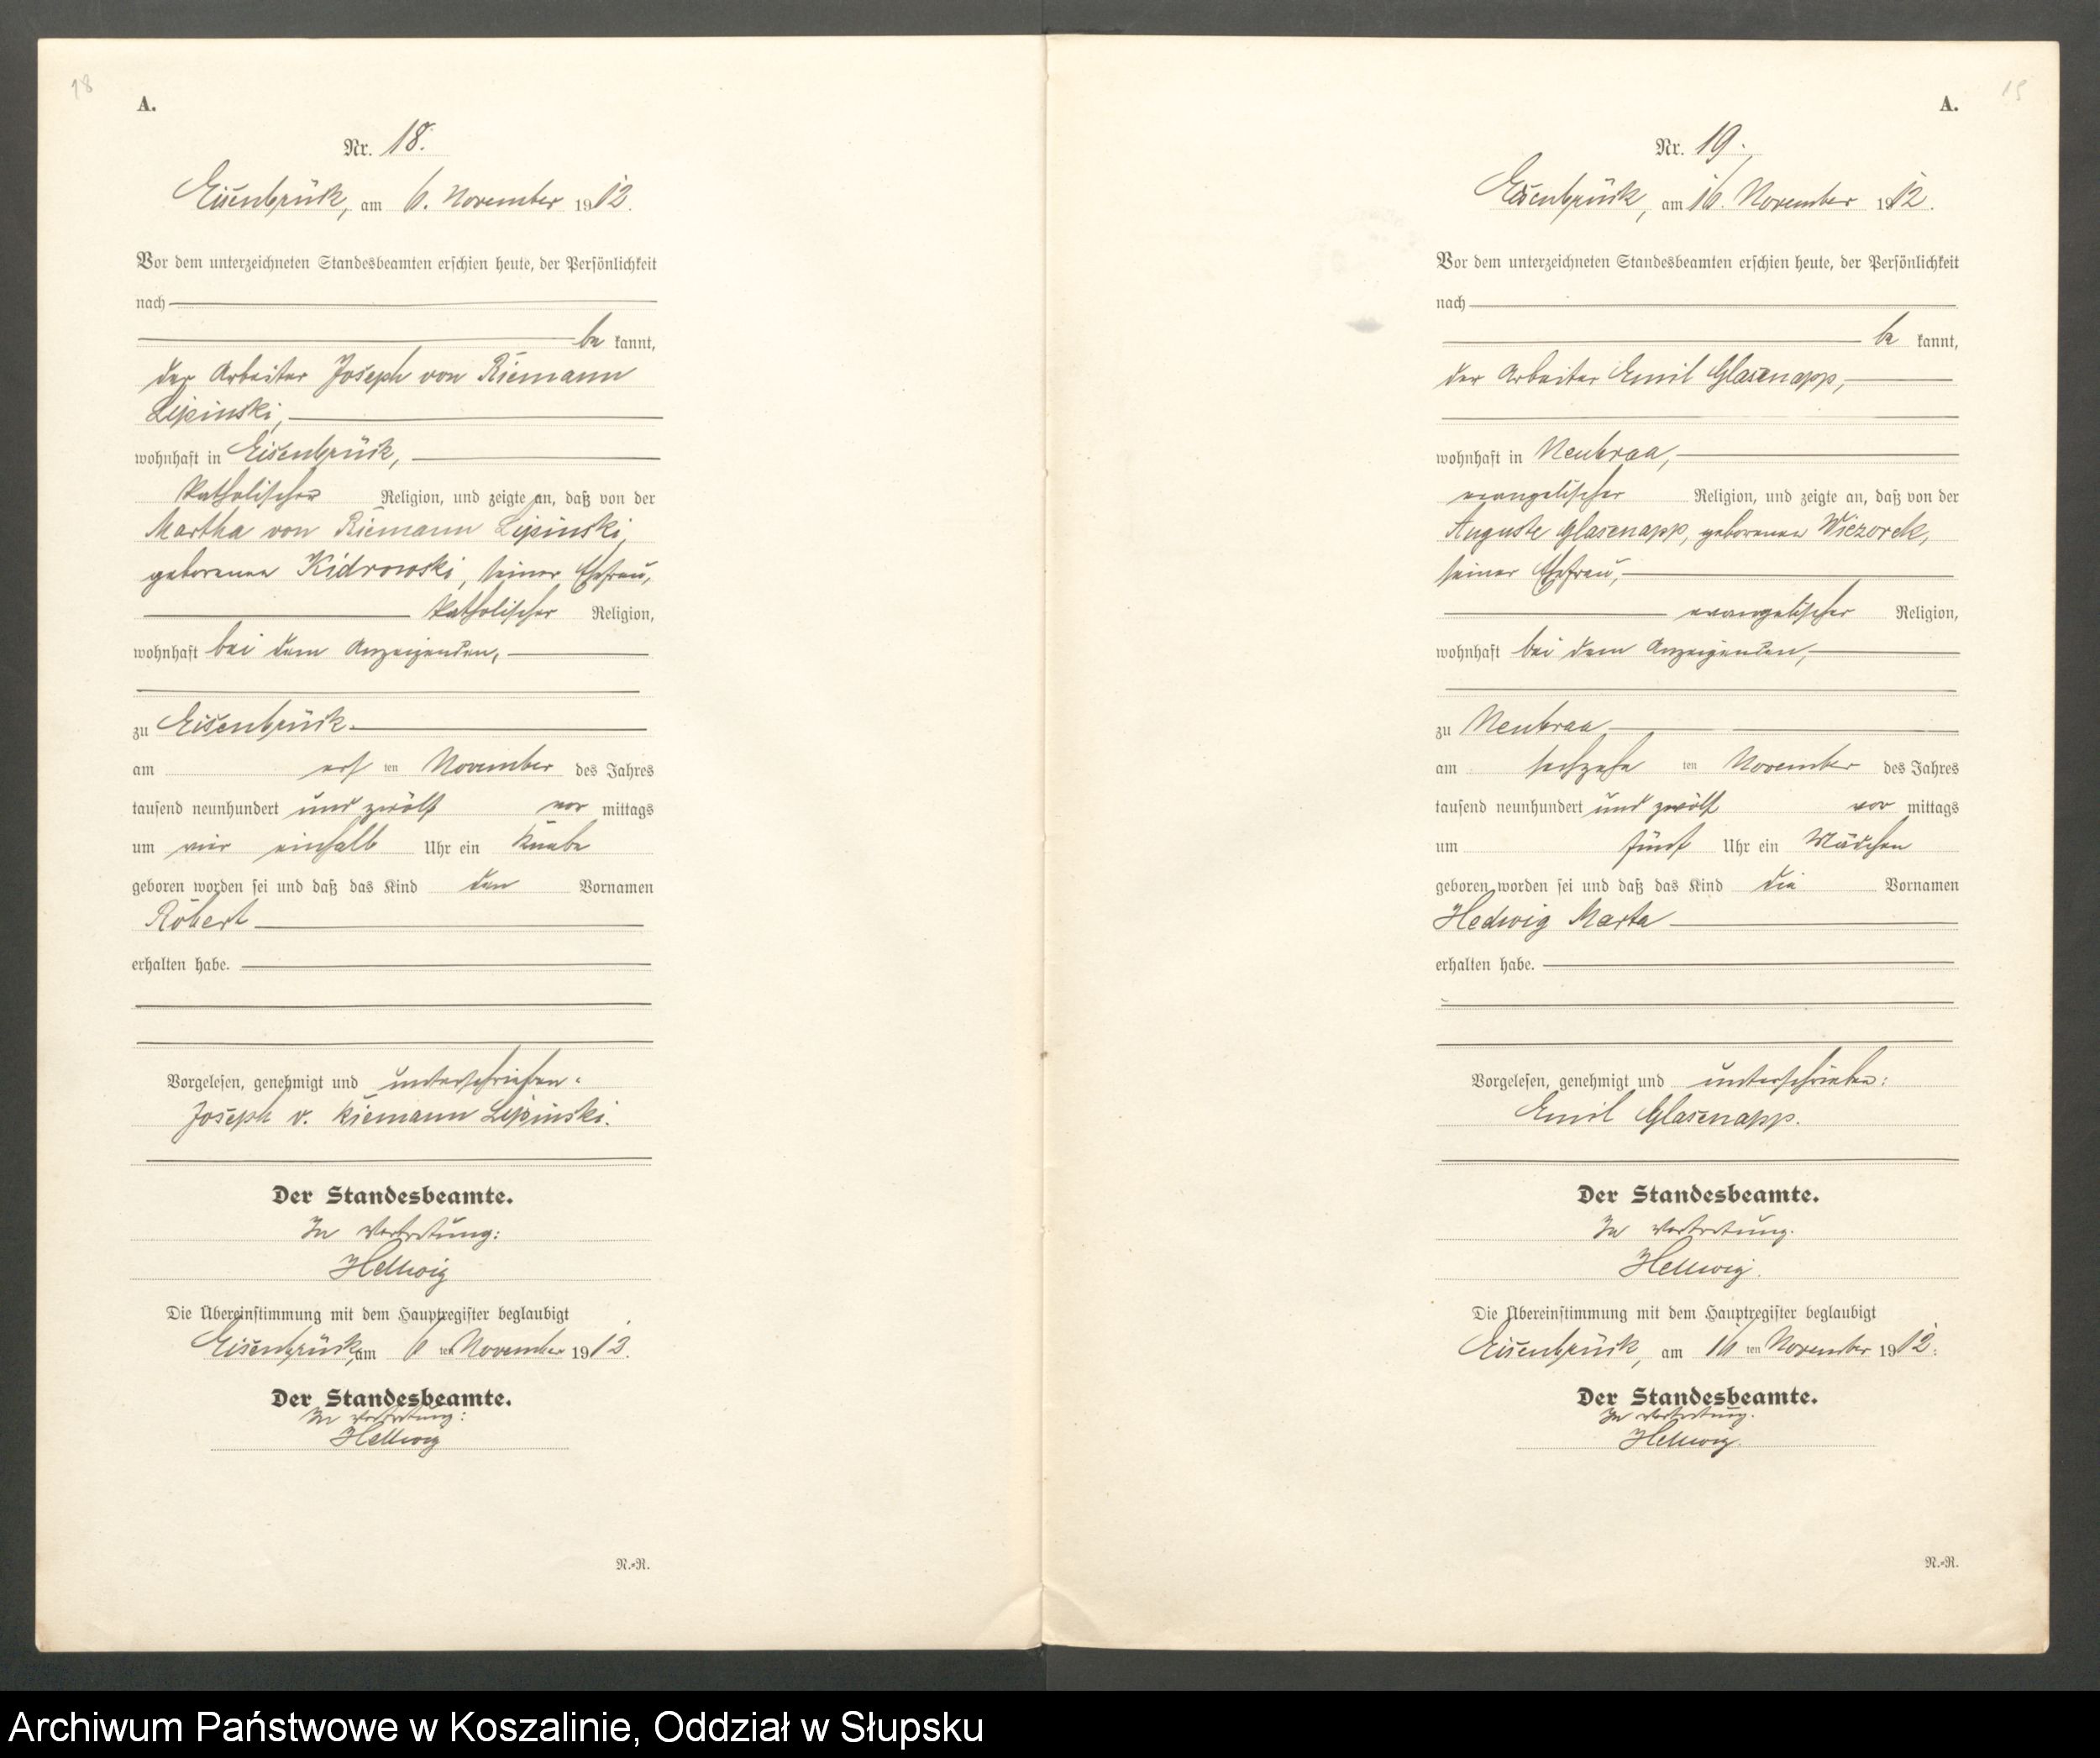 18
A.
Nr. 18.
Eisenbrück, am 6. November 1912.
Vor dem unterzeichneten Standesbeamten erschien heute, der Persönlichkeit
nach
be kannt,
der Arbeiter Joseph von Riemann
Lipinski,
wohnhaft in Eisenbrück,
katholischer Religion, und zeigte an, daß von der
Martha von Riemann Lipinski,
geborenen Kidrowski, seiner Ehefrau,
katholischer Religion,
wohnhaft bei dem Anzeigenden,
zu Eisenbrück
am ersten November des Jahres
tausend neunhundert und zwölf vor mittags
um einhalb Uhr ein Knabe
geboren worden sei und daß das Kind den Vornamen
Robert
erhalten habe.
Vorgelesen, genehmigt und unterschrieben.
Joseph v. Riemann Lipinski.
Der Standesbeamte.
In Vertretung:
Hellwig
Die Übereinstimmung mit dem Hauptregister beglaubigt
Eisenbrück, am 6 ten November 1912.
Der Standesbeamte.
In Vertretung:
Hellwig
N.-R.
A.
Nr. 19.
Eisenbrück, am 16. November 1912.
Vor dem unterzeichneten Standesbeamten erschien heute, der Persönlichkeit
nach
be kannt,
der Arbeiter Emil Glasenapp,
wohnhaft in Neubraa,
evangelischer Religion, und zeigte an, daß von der
Auguste Glasenapp, geborenen Wiezorek,
seiner Ehefrau,
evangelischer Religion,
wohnhaft bei dem Anzeigenden,
zu Neubraa
am sechzehn ten November des Jahres
tausend neunhundert und zwölf vor mittags
um fünf Uhr ein Mädchen
geboren worden sei und daß das Kind die Vornamen
Hedwig Marta
erhalten habe.
Vorgelesen, genehmigt und unterschrieben:
Emil Glasenapp.
Der Standesbeamte.
In Vertretung.
Hellwig.
Die Übereinstimmung mit dem Hauptregister beglaubigt
Eisenbrück, am 16 ten November 1912.
Der Standesbeamte.
In Vertretung.
Hellwig.
N.-R.
Archiwum Państwowe w Koszalinie, Oddział w Słupsku